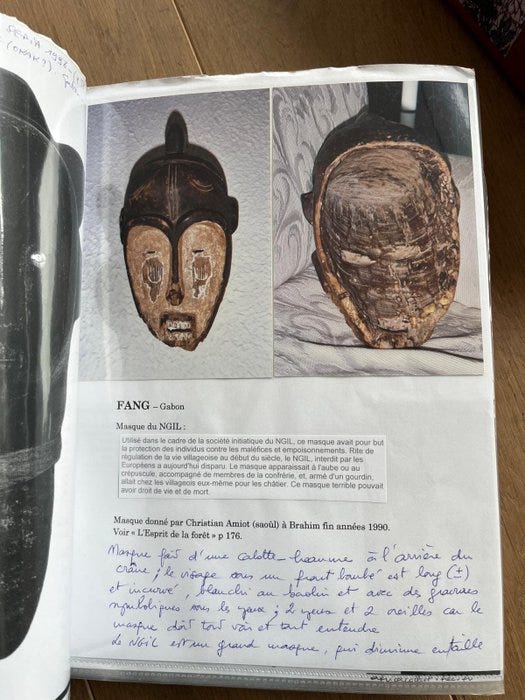 FERIA 1998
FANG – Gabon
Masque du NGIL :
Utilisé dans le cadre de la société initiatique du NGIL, ce masque avait pour but
la protection des individus contre les maléfices et empoisonnements. Rite de
régulation de la vie villageoise au début du siècle, le NGIL, interdit par les
Européens a aujourd'hui disparu. Le masque apparaissait à l'aube ou au
crépuscule, accompagné de membres de la confrérie, et, armé d'un gourdin,
allait chez les villageois eux-même pour les châtier. Ce masque terrible pouvait
avoir droit de vie et de mort.
Masque donné par Christian Amiot (saoûl) à Brahim fin années 1990.
Voir « L'Esprit de la forêt » p 176.
Masque fait d'une calotte-heaume à l'arrière du
crâne ; le visage sous un front bombé est long (±)
et incurvé, blanchi au kaolin et avec des gravures
symboliques sous les yeux ; 2 yeux et 2 oreilles car le
masque doit tout voir et tout entendre
Le NGIL est un grand masque, qui diminue en taille